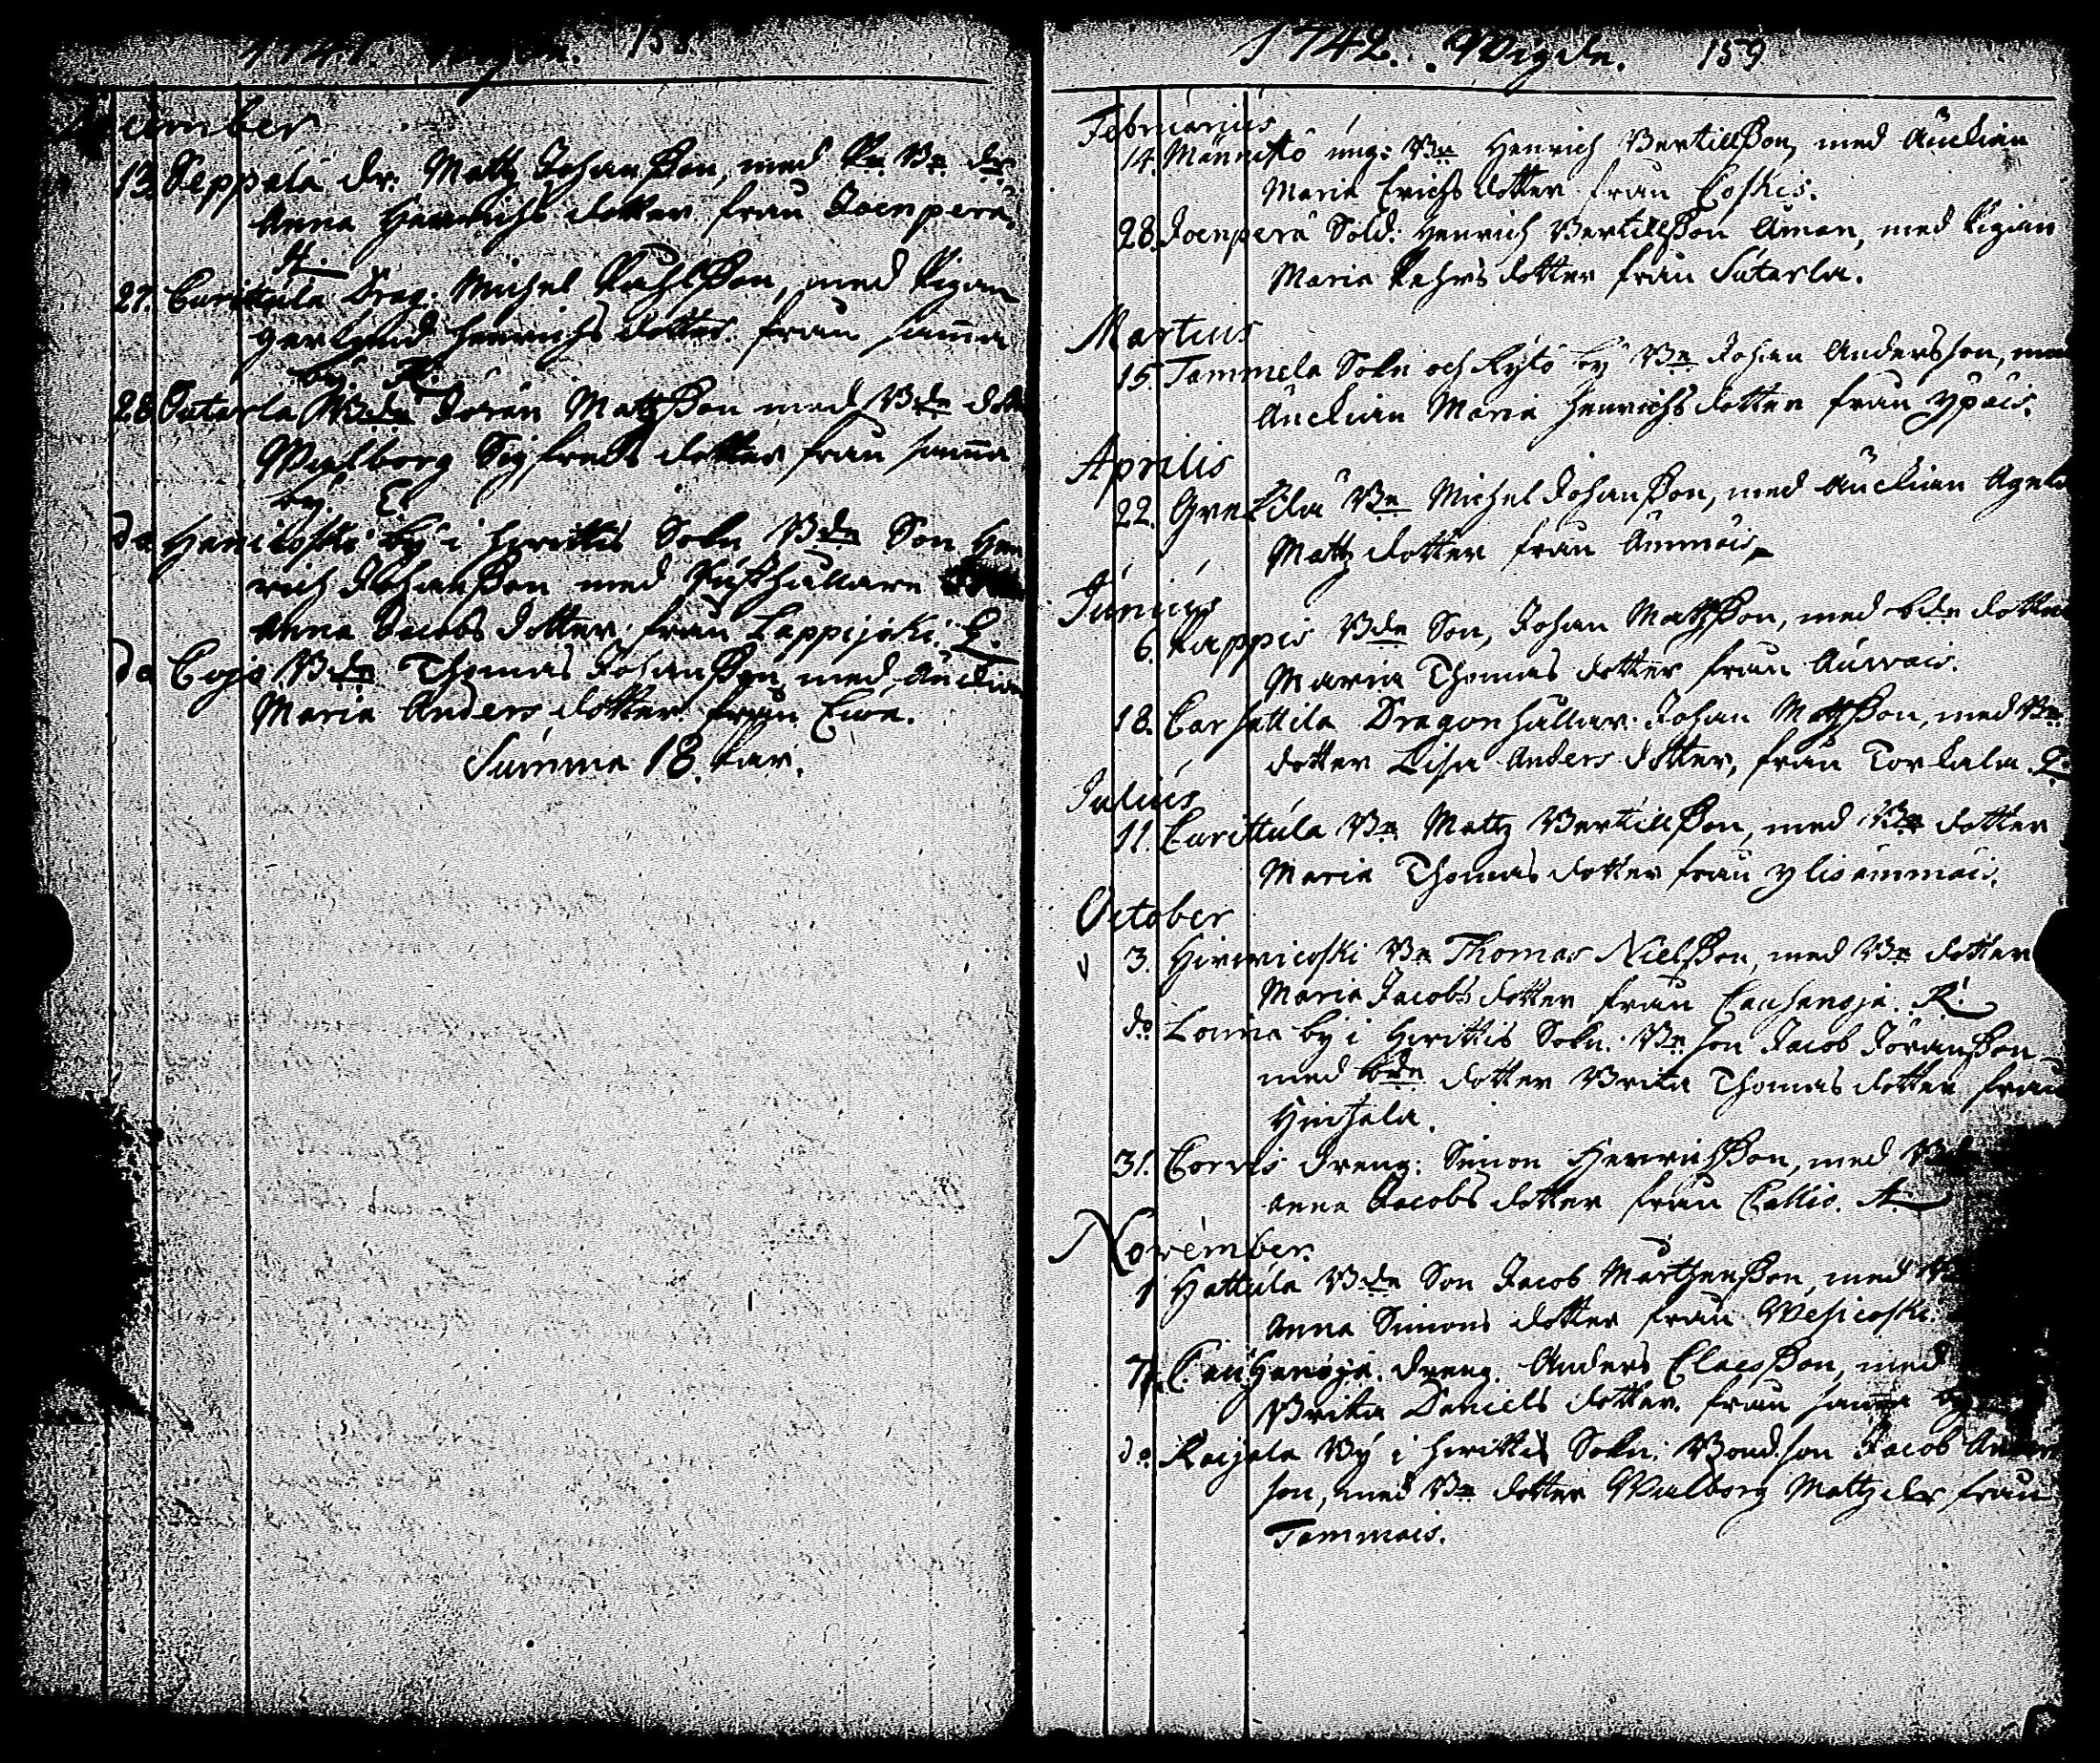 1741. Wigde. 158
December
13. Seppälä dr. Matz Johansson, med
Anna Henrichs dotter från Joenperä.
A.
27. Carittula Drag. Michel Påhlsson, med Pigan
Gertrud Henrichs dotter från samma
by. R.
28. Satarla Bde Jöran Mattsson med Bde dotter
Walborg Sigfreds dotter från samma
by. E.
do by i Hvittis Sokn Bde Son Hen
rich Johansson med Rusthållare
Anna Jacobs dotter från Leppijoki. E.
do Cojo Bde Thomas Johansson, med Änckian
Maria Anders dotter från
Summa 18. Par.
1742. Wigde. 159
Februarius
14. Männistö ung: Bn Henrich Bertillsson, med Änckian
Maria Erichs dotter från Coskis.
28. Joenperä Sold: Henrich Bertillsson Åman, med Pigan
Maria Pehrs dotter från Satarla.
Martius
15. Tammela Sokn och by Bn Johan Andersson, med
Änckian Maria Henrichs dotter från Ypäis.
Aprilis
22. Grekilä Bn Michel Johansson, med Änckian Agata
Matz dotter från Ämmäis.
Junius
6. Kappis Bde Son, Johan Matsson, med bde dotter
Maria Thomas dotter från Auvais.
18. Carhattila Dragonhållar. Johan Matsson, med Bn
dotter Lisa Anders dotter, från Torkala. E.
Julius
11. Carittula Bn Matz Bertillsson, med Bn dotter
Maria Thomas dotter från Ylisämmäis.
October
3. Hirvicoski Bn Thomas Nielsson, med Bn dotter
Maria Jacobs dotter från Cauhanoja. R.
do Loima by i Hvittis Sokn. Bn son Jacob Jöransson
med bde dotter Brita Thomas dotter från
31. Corvis dreng. Simon Henrichsson, med
Anna Jacobs dotter från A.
November.
1 Hattula Bde Son Jacob Mårtensson, med
Anna Simons dotter från Wesicoski.
7. Cauhanoja. dreng. Anders Claesson, med
Brita Daniels dotter. från samma by
do By i Hvittis Sokn: Bond son Jacob Anders
son, med Bn dotter Walborg Matz dr från
Tammais.